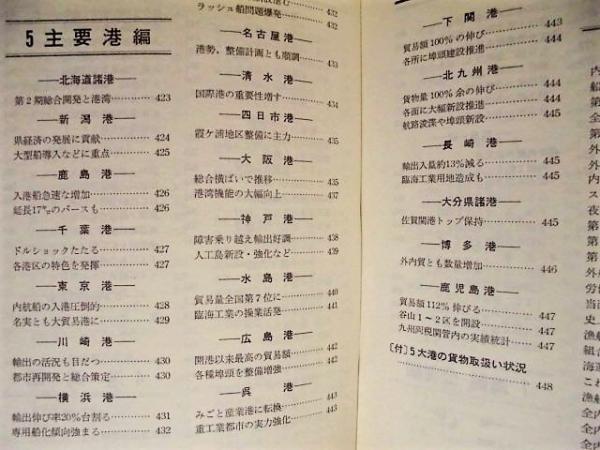 5 主要港編
──北海道諸港──
第2期総合開発と港湾…………423
──新潟港──
県経済の発展に貢献…………424
大型船導入などに重点…………425
──鹿島港──
入港船急速な増加…………426
延長17㌔のバースも…………426
──千葉港──
ドルショックたたる…………427
各港区の特色を発揮…………427
──東京港──
内航船の入港圧倒的…………428
名実とも大貿易港に…………429
──川崎港──
輸出の活況も目だつ…………430
都市再開発と総合策定…………430
──横浜港──
輸出伸び率20%台割る…………431
専用船化傾向強まる…………432
ラッシュ船問題爆発…………432
──名古屋港──
港勢、整備計画とも順調…………433
──清水港──
国際港の重要性増す…………434
──四日市港──
霞ケ浦地区整備に主力…………435
──大阪港──
総合横ばいで推移…………435
港湾機能の大幅向上…………437
──神戸港──
障害乗り越え輸出好調…………438
人工島新設・強化など…………439
──水島港──
貿易量全国第7位に…………440
臨海工業の操業活発…………441
──広島港──
開港以来最高の貿易額…………442
各種埠頭を整備増強…………442
──呉港──
みごと産業港に転換…………443
重工業都市の実力強化…………443
──下関港──
貿易額100%の伸び…………443
各所に埠頭建設推進…………444
──北九州港──
貨物量100%余の伸び…………444
各面に大幅新設推進…………444
航路浚渫や埠頭新設…………444
──長崎港──
輸出入量約13%減る…………445
臨海工業用地造成も…………445
──大分県諸港──
佐賀関港トップ保持…………445
──博多港──
外内貿とも数量増加…………446
──鹿児島港──
貿易額112%伸びる…………447
谷山1〜2区を開設…………447
九州同税関管内の実績統計……447
〔付〕5大港の貨物取扱い状況
…………448